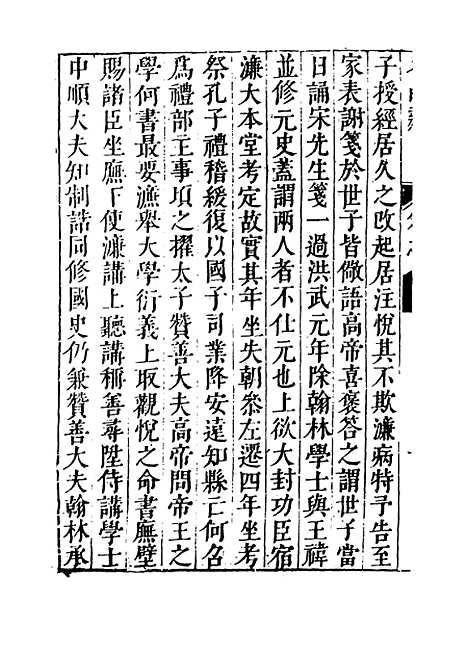 子授經居久之改起居注悅其不欺濂病特予告至
家表謝箋於世子皆儆語高帝喜褒答之謂世子當
日誦宋先生箋一過洪武元年除翰林學士與王禕
並修元史蓋謂兩人者不仕元也上欲大封功臣宿
濂大本堂考定故實其年坐失朝參左遷四年坐考
祭孔子禮稽緩復以國子司業降安遠知縣亡何召
爲禮部主事頃之擢太子贊善大夫高帝問帝王之
學何書最要濂舉大學衍義上取觀悅之命書廡壁
賜諸臣坐廡下使濂講上聽講稱善尋陞侍講學士
中順大夫知制誥同修國史仍兼贊善大夫翰林承